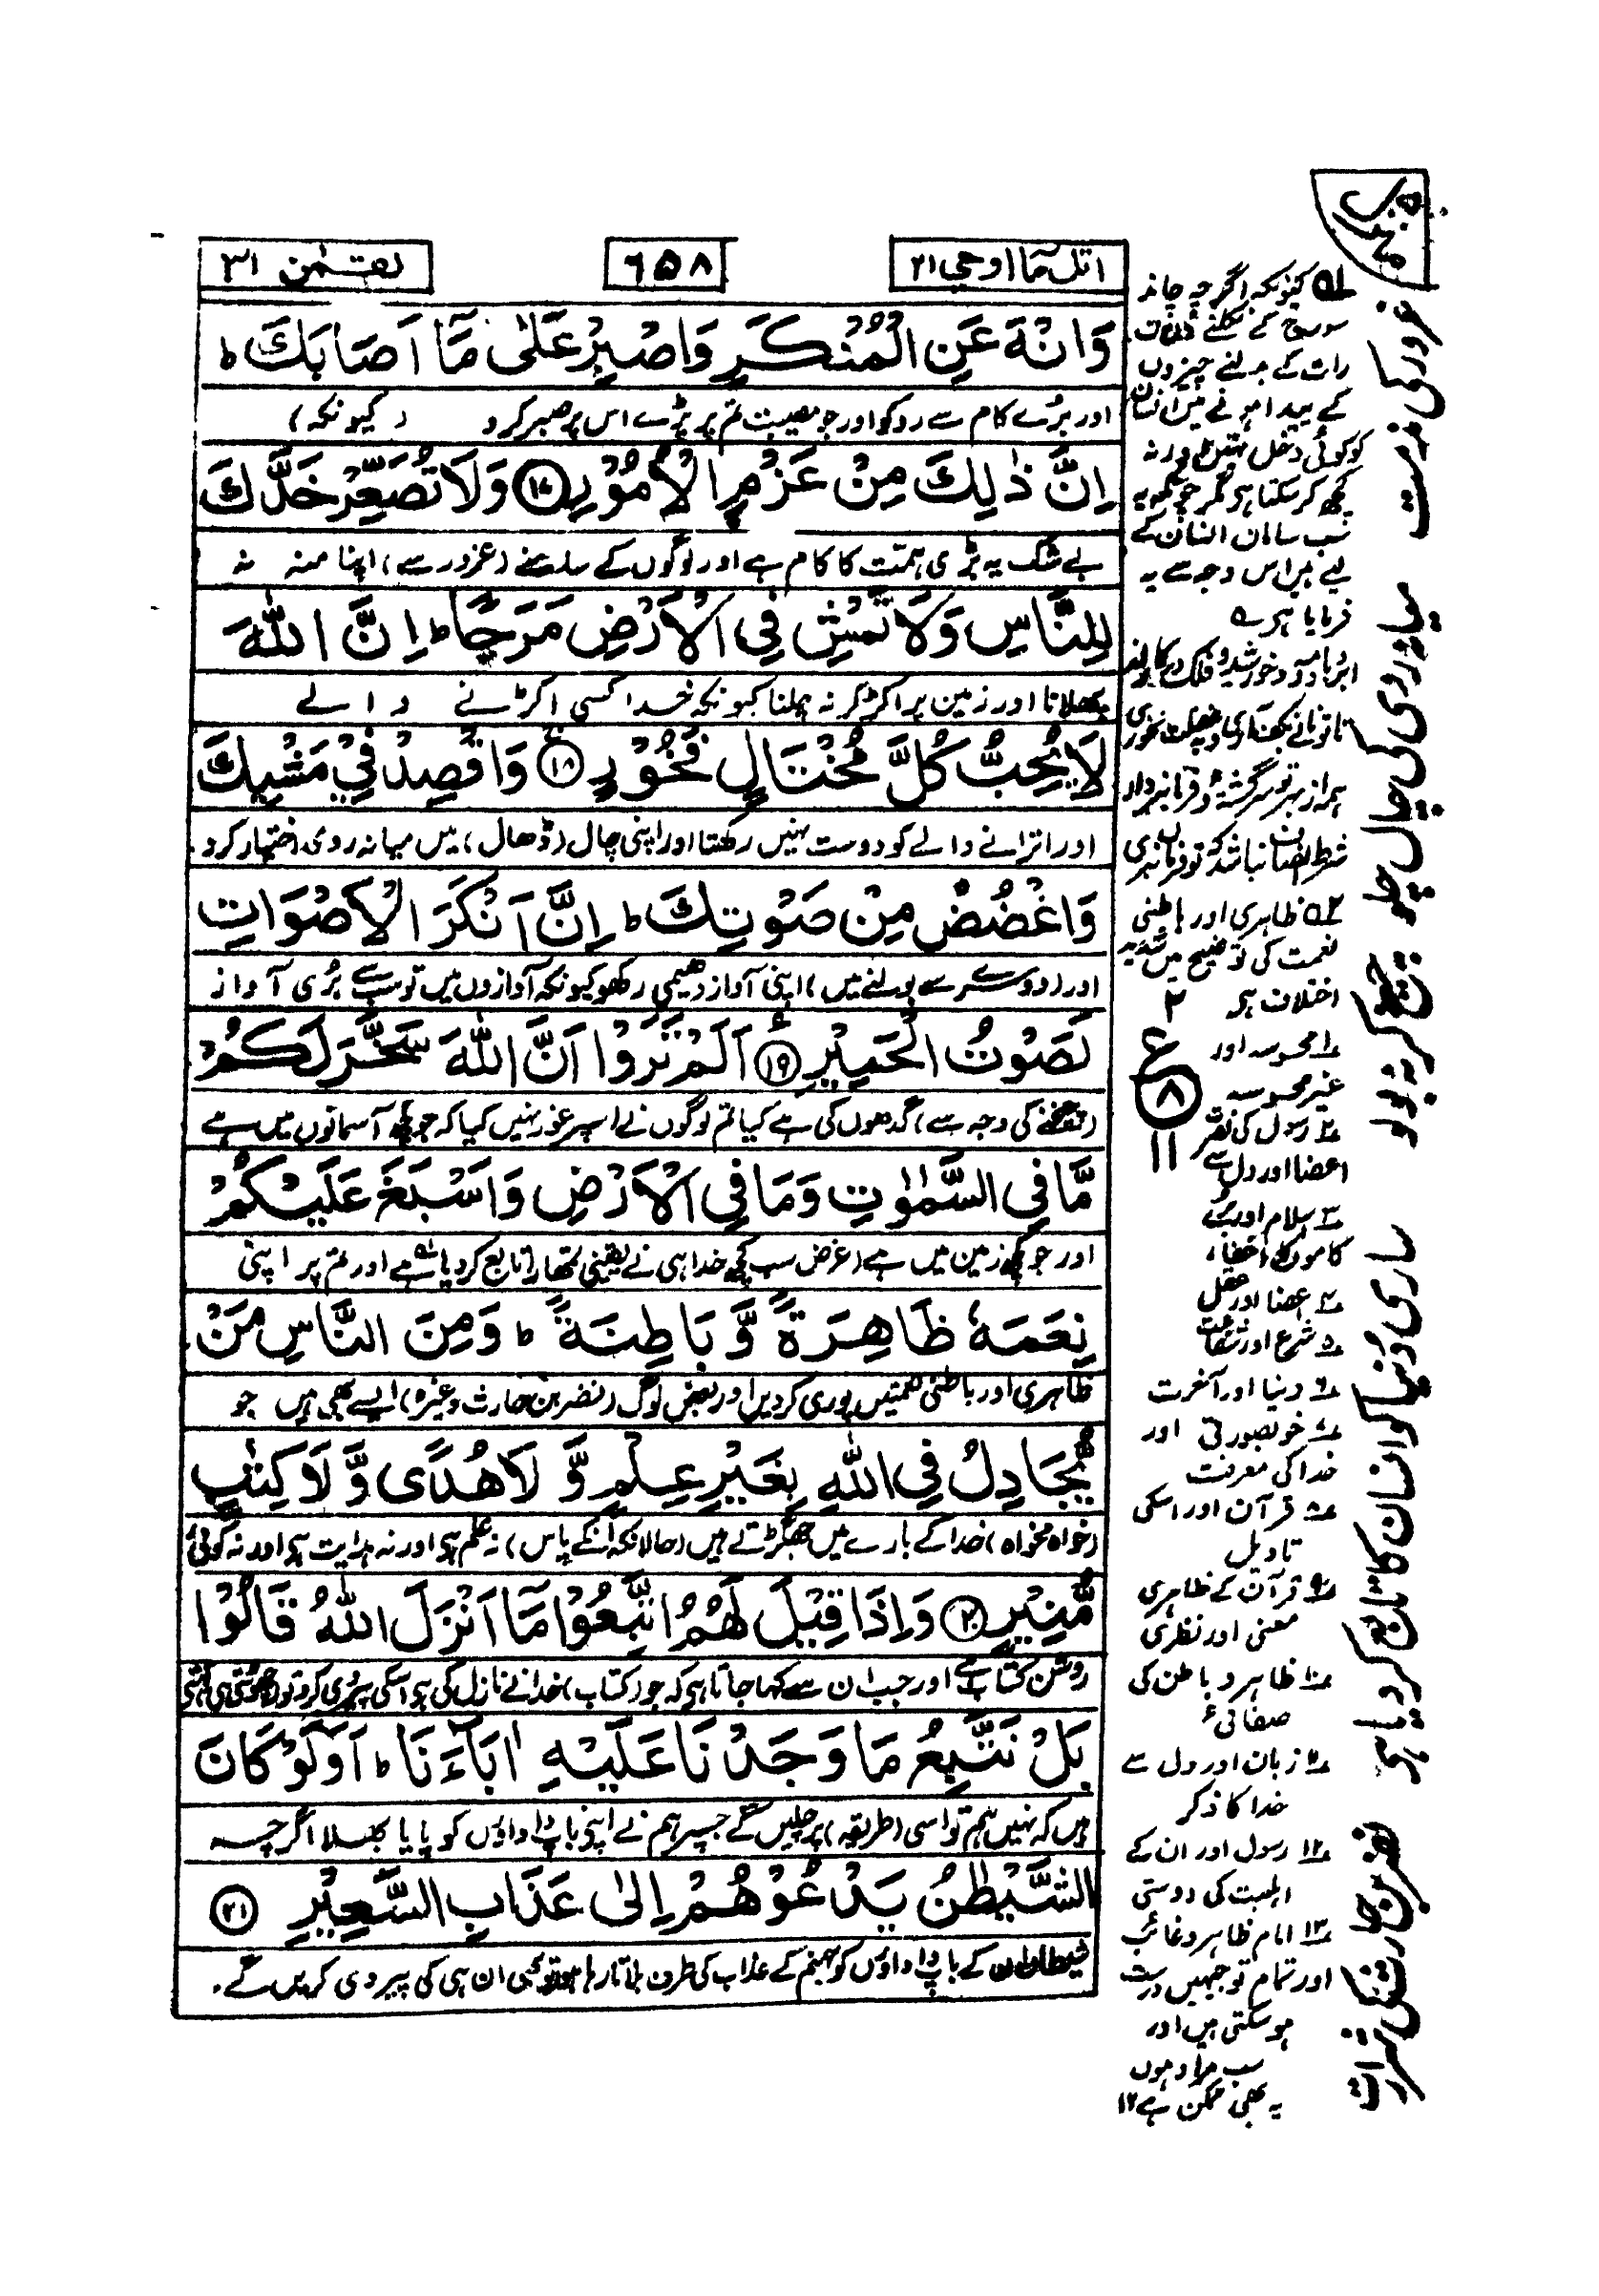 اتل مآ اوحی ۲۱
۶۵۸
لقمٰن ۳۱
وَانْهَ عَنِ الْمُنْكَرِ وَاصْبِرْ عَلٰى مَآ اَصَابَكَ ؕ
اور بُرے کام سے روکو اور جو مصیبت تم پر پڑے اس پر صبر کرو (کیونکہ)
اِنَّ ذٰلِكَ مِنْ عَزْمِ الْاُمُوْرِ ۱۷ وَلَا تُصَعِّرْ خَدَّكَ
بے شک یہ بڑی ہمت کا کام ہے اور لوگوں کے سامنے (غرور سے) اپنا منہ نہ
لِلنَّاسِ وَلَا تَمْشِ فِى الْاَرْضِ مَرَحًا ؕ اِنَّ اللّٰهَ
پھلانا اور زمین پر اکڑ کر نہ چلنا کیونکہ خدا کسی اکڑنے والے
لَا يُحِبُّ كُلَّ مُخْتَالٍ فَخُوْرٍ ۱۸ وَاقْصِدْ فِيْ مَشْيِكَ
اور اترانے والے کو دوست نہیں رکھتا اور اپنی چال (ڈھال) میں میانہ روی اختیار کرو
وَاغْضُضْ مِنْ صَوْتِكَ ؕ اِنَّ اَنْكَرَ الْاَصْوَاتِ
اور (دوسرے سے بولنے میں) اپنی آواز دھیمی رکھو کیونکہ آوازوں میں تو سب سے بُری آواز
لَصَوْتُ الْحَمِيْرِ ۱۹ اَلَمْ تَرَوْا اَنَّ اللّٰهَ سَخَّرَ لَكُمْ
(چیخنے کی وجہ سے) گدھوں کی ہے کیا تم لوگوں نے اسپر غور نہیں کیا کہ جو کچھ آسمانوں میں ہے
مَّا فِى السَّمٰوٰتِ وَمَا فِى الْاَرْضِ وَاَسْبَغَ عَلَيْكُمْ
اور جو کچھ زمین میں ہے (غرض سب کچھ) خدا ہی نے یقینی تمھارا تابع کر دیا ہے اور تم پر اپنی
نِعَمَهٗ ظَاهِرَةً وَّ بَاطِنَةً ؕ وَمِنَ النَّاسِ مَنْ
ظاہری اور باطنی نعمتیں پوری کر دیں اور بعض لوگ (نضر بن حارث وغیرہ) ایسے بھی ہیں جو
يُّجَادِلُ فِى اللّٰهِ بِغَيْرِ عِلْمٍ وَّ لَا هُدًى وَّ لَا كِتٰبٍ
(خواہ مخواہ) خدا کے بارے میں جھگڑتے ہیں (حالانکہ انکے پاس) نہ علم ہے اور نہ ہدایت ہے اور نہ کوئی
مُّنِيْرٍ ۲۰ وَاِذَا قِيْلَ لَهُمُ اتَّبِعُوْا مَآ اَنْزَلَ اللّٰهُ قَالُوْا
روشن کتاب ہے اور جب ان سے کہا جاتا ہے کہ جو (کتاب) خدا نے نازل کی ہے اسکی پیروی کرو تو
بَلْ نَتَّبِعُ مَا وَجَدْنَا عَلَيْهِ اٰبَآءَنَا ؕ اَوَلَوْ كَانَ
ہیں کہ نہیں ہم تو اسی (طریقہ) پر چلیں گے جسپر ہم نے اپنے باپ داداؤں کو پایا بھلا اگرچہ
الشَّيْطٰنُ يَدْعُوْهُمْ اِلٰى عَذَابِ السَّعِيْرِ ۲۱
شیطان کے باپ داداؤں کو جہنم کے عذاب کی طرف بلاتا رہا ان ہی کی پیروی کریں گے۔
۱ کیونکہ اگرچہ چاند
سورج کے نکلنے
رات کے بدلنے چیزوں
کے پیدا ہونے میں انسان
کو کوئی دخل نہیں اور نہ
کچھ کر سکتا ہے مگر چونکہ یہ
سب سامان انسان کے
لیے ہیں اس وجہ سے یہ
فرمایا ہے
ابر و باد و مہ و خورشید و فلک در کارند
تا تو نانے بکف آری و بغفلت نخوری
ہمہ از بہر تو سرگشتہ و فرمانبردار
شرط انصاف نباشد کہ تو فرماں نبری
۲ ظاہری اور باطنی
نعمت کی توضیح میں شدید
اختلاف ہے
۲
ع
۸
۱۱
۱ محسوسہ اور
غیر محسوسہ
۲ رسول کی
اعضا اور دل سے
۳ اسلام اور
کاموں کا اخفاء
۴ اعضا اور عقل
۵ شرع اور شفاعت
۶ دنیا اور آخرت
۷ خوبصورتی اور
خدا کی معرفت
۸ قرآن اور اسکی
تاویل
۹ قرآن کے ظاہری
معنی اور نظری
۱۰ ظاہر و باطن کی
صفائی
زبان اور دل سے
خدا کا ذکر
۱۲ رسول اور ان کے
اہلبیت کی دوستی
۱۳ امام ظاہر و غائب
اور تمام توجیہیں درست
ہو سکتی ہیں اور
سب مراد ہوں
یہ بھی ممکن ہے ۱۲
غرور کی مذمت
میانہ روی کی چال چلو
چیخ کر نہ بولو
ساری دُنیا کو انسان کا تابع کر دیا ہے
نضر بن حارث کی شرارت